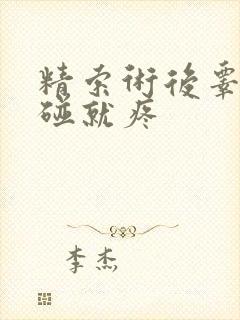 精索術後睾
碰就疼
李杰